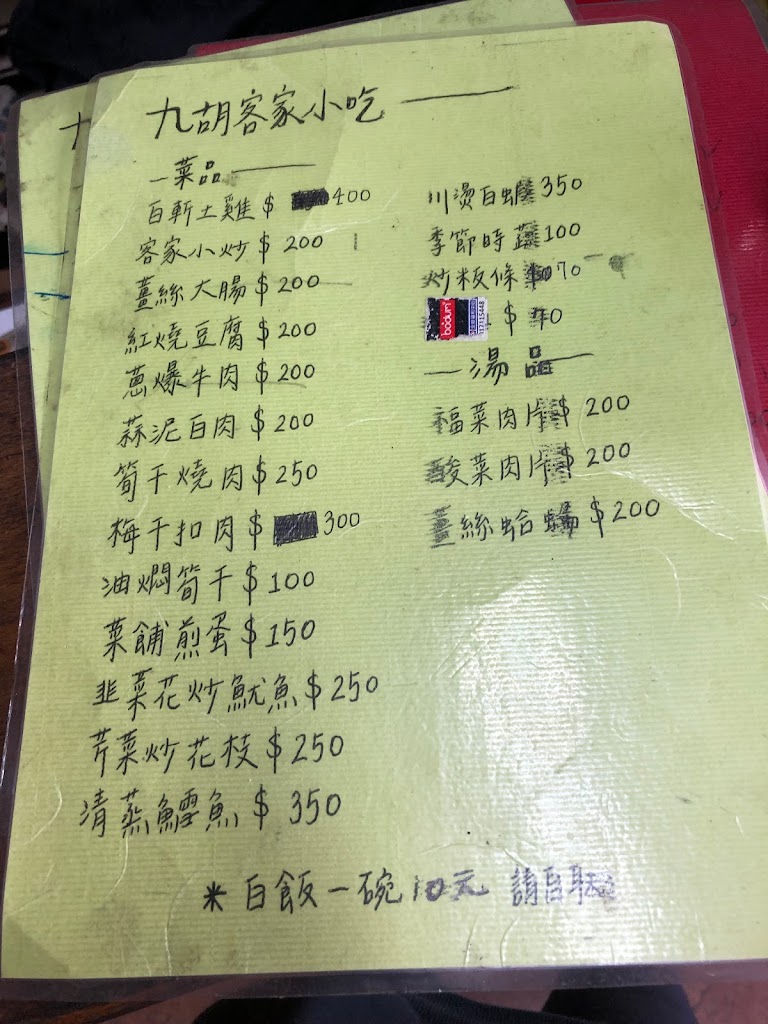 九胡客家小吃
一菜品
白斬土雞 $ 400
客家小炒 $ 200
薑絲大腸 $ 200
紅燒豆腐 $ 200
蔥爆牛肉 $ 200
蒜泥白肉 $ 200
筍干燒肉 $ 250
梅干扣肉 $ 300
油燜筍干 $ 100
菜餔煎蛋 $ 150
韭菜花炒魷魚 $ 250
芹菜炒花枝 $ 250
清蒸鱈魚 $ 350
川燙白蝦 350
季節時蔬 100
炒粄條 70
bodum
$
一湯品
福菜肉片 $ 200
酸菜肉片 $ 200
薑絲蛤蠣 $ 200
* 白飯一碗10元 請自取